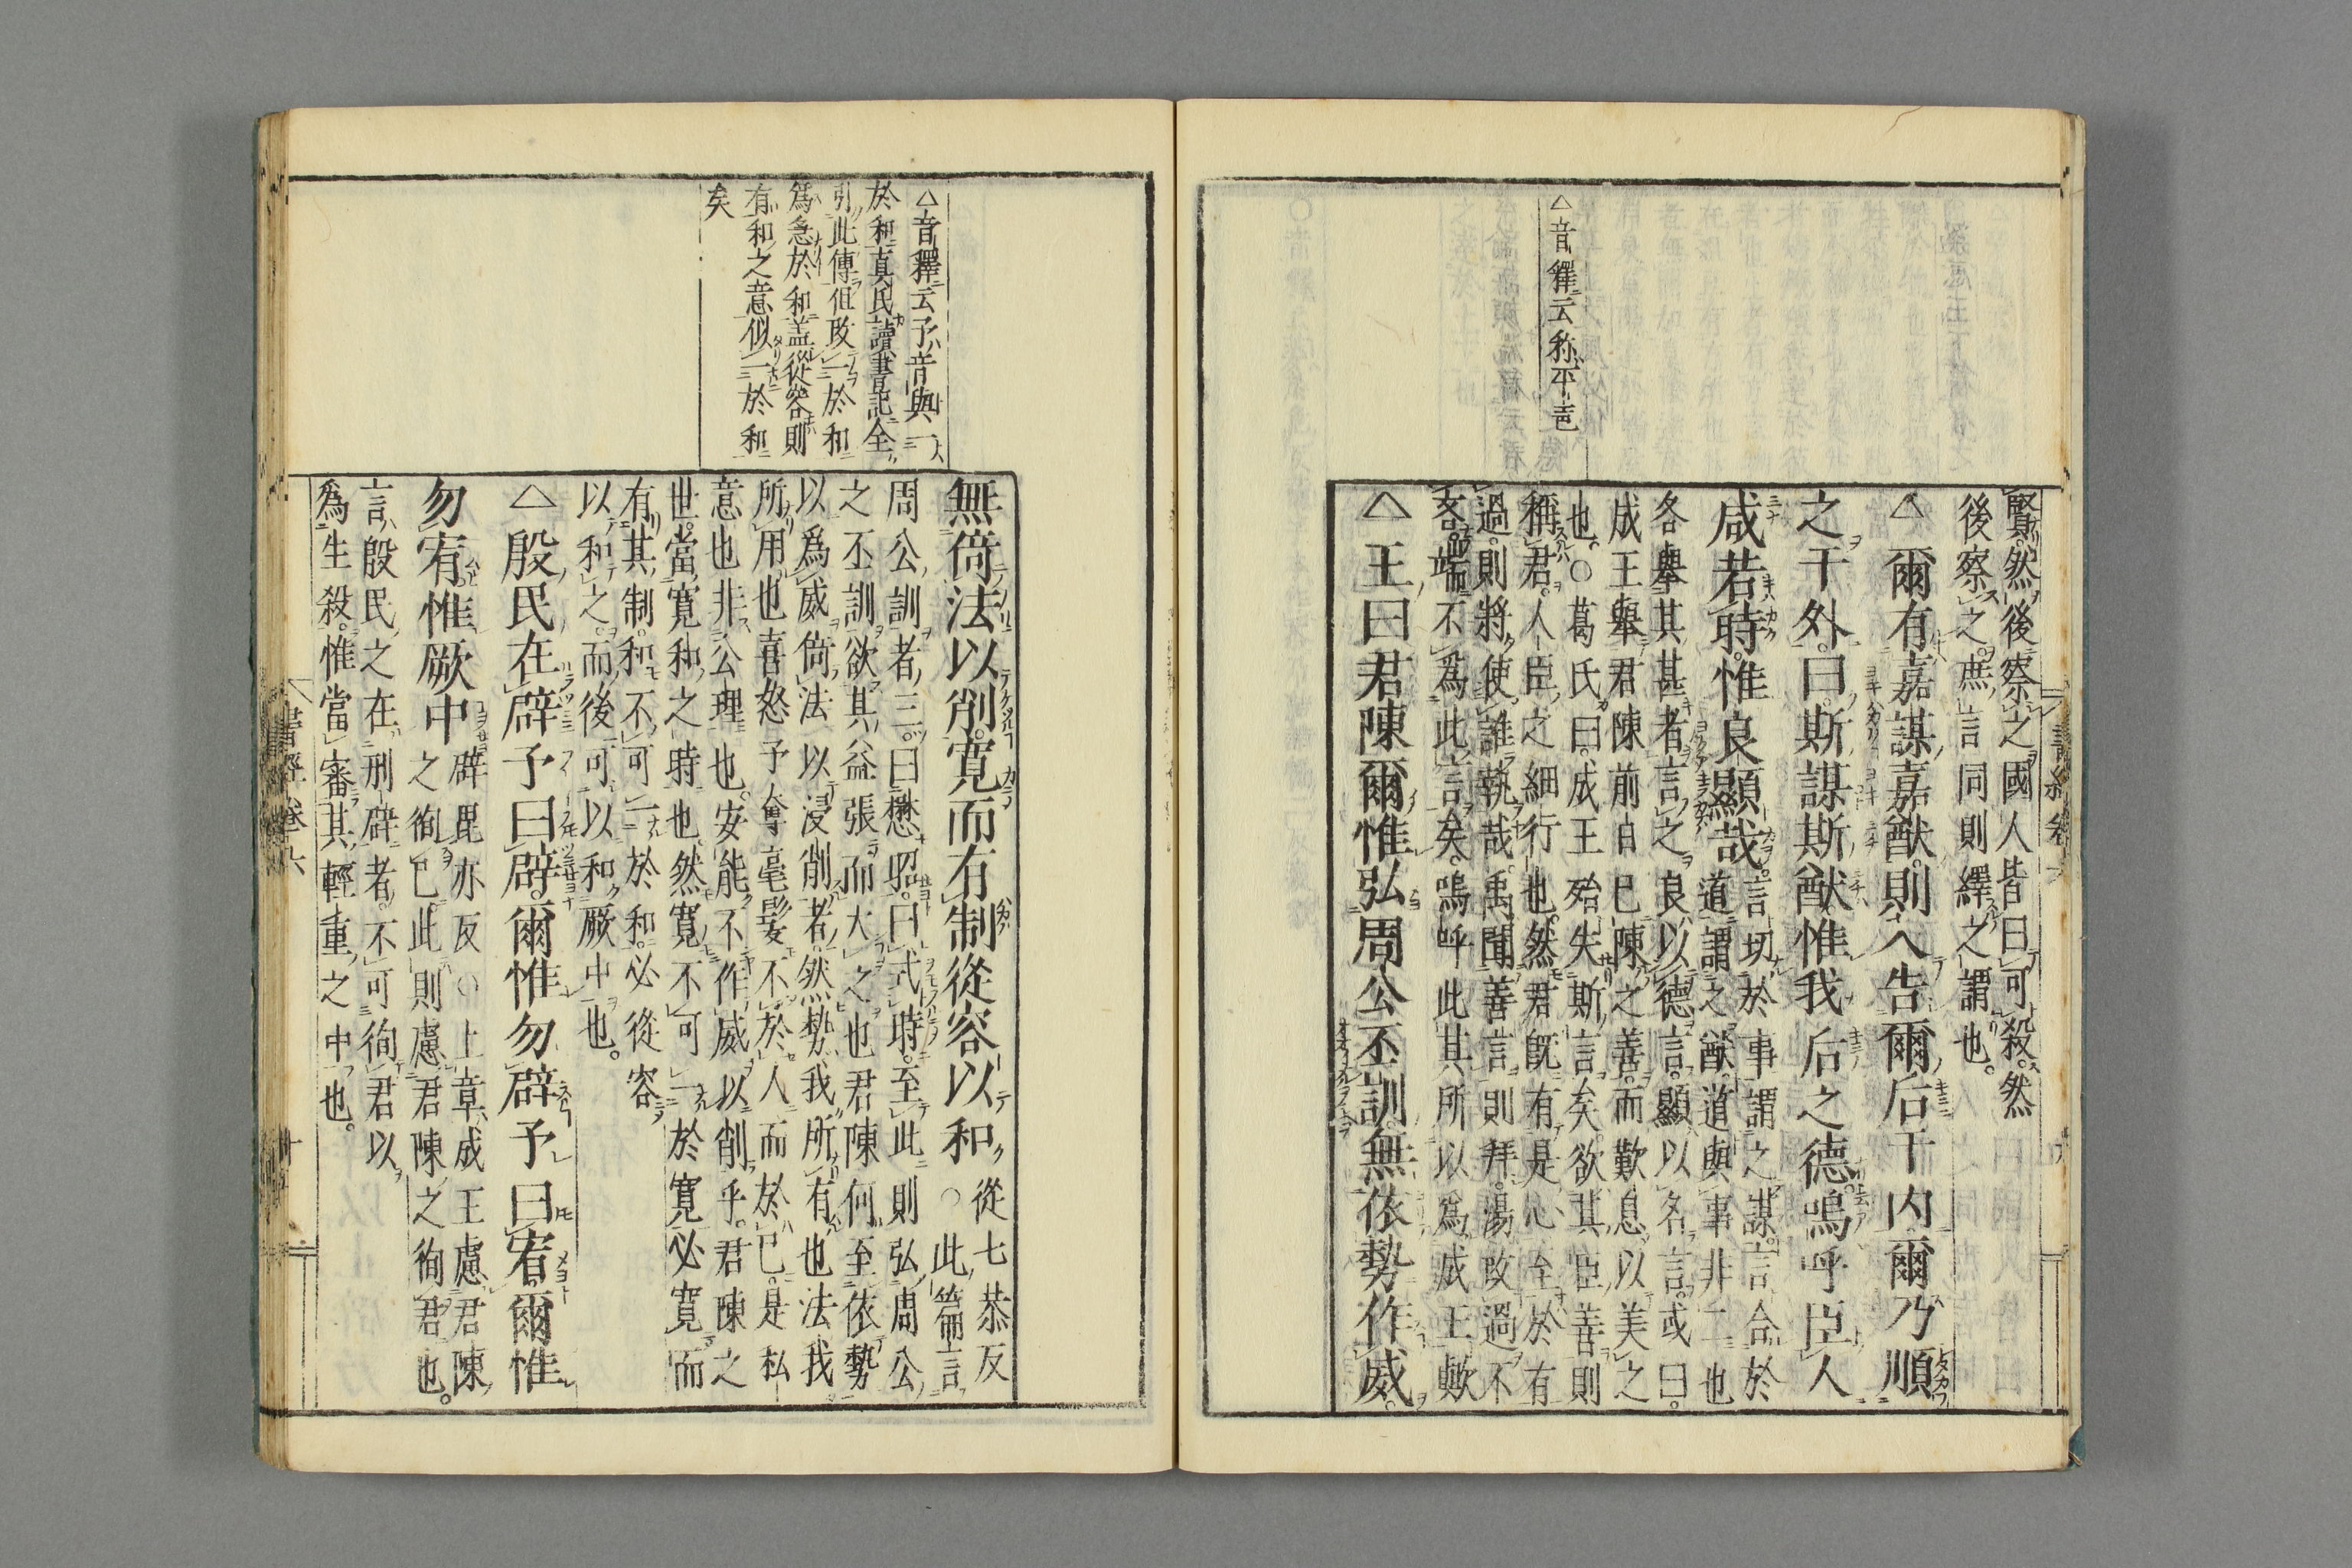 △音釋云称平声
賢然後察之國人皆曰可殺然
後察之庶言同則繹之謂也
△爾有嘉謀嘉猷則入告爾后于内爾乃順
之于外曰斯謀斯猷惟我后之德嗚呼臣人
咸若時惟良顯哉言切於事謂之謀言合於
道謂之猷道與事非二也
各舉其甚者言之良以德言顯以名言或曰
成王舉君陳前日已陳之善而歎息以美之
也○葛氏曰成王殆失斯言矣欲其臣善則
稱君人臣之細行也然君既有是心至於有
過則將使誰執哉禹聞善言則拜湯改過不
吝端不為此言矣嗚呼此其所以為成王歟
△王曰君陳爾惟弘周公丕訓無依勢作威
△音釋云予音與一
於和真氏讀書記全
引此傳但改一於和
爲急於和盖從容則
有和之意似一於和
矣
無倚法以削寛而有制從容以和從七恭反
○此篇言
周公訓者三曰懋昭曰式時至此則弘周公
之丕訓欲其益張而大之也君陳何至依勢
以爲威倚法以浸削者然勢我所有也法我
所用也喜怒予奪毫髮不於人而於已是私
意也非公理也安能不作威以削乎君陳之
世當寛和之時也然寛不可一於寛必寛而
有其制和不可一於和必從容
以和之而後可以和厥中也
△殷民在辟予曰辟爾惟勿辟予曰宥爾惟
勿宥惟厥中辟毘亦反○上章成王慮君陳
之徇已此則慮君陳之徇君也
言殷民之在刑辟者不可徇君以
為生殺惟當審其輕重之中也
書經卷六
十